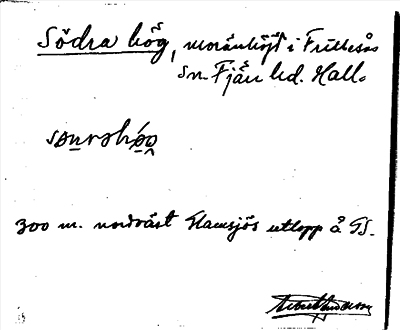 Södra hög, moränhöjd i Frillesås
sn. Fjäre hd. Hall.
300 m. nordväst Hamsjös utlopp å TS.